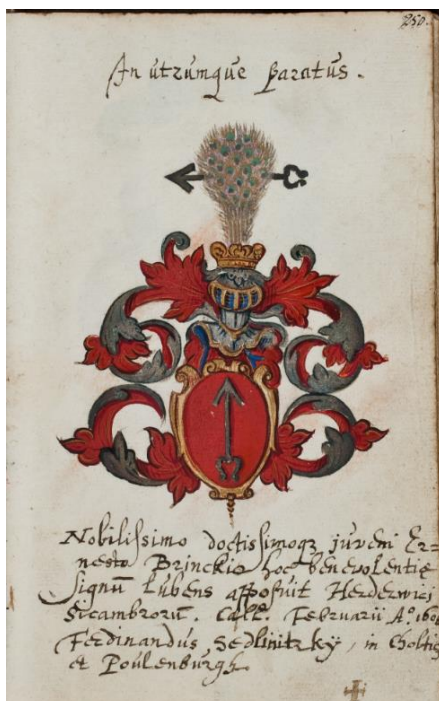 250.
In utrumque paratus.
Nobilissimo doctissimoqz juveni Er=
nesto Brinckio hoc benevolentię
signũ lubens apposuit Herderwici
Sicambrorũ. Call. Februarii Aº 160
Ferdinandus Sedlinitzky, in Choltitz
et Poulenburgh.